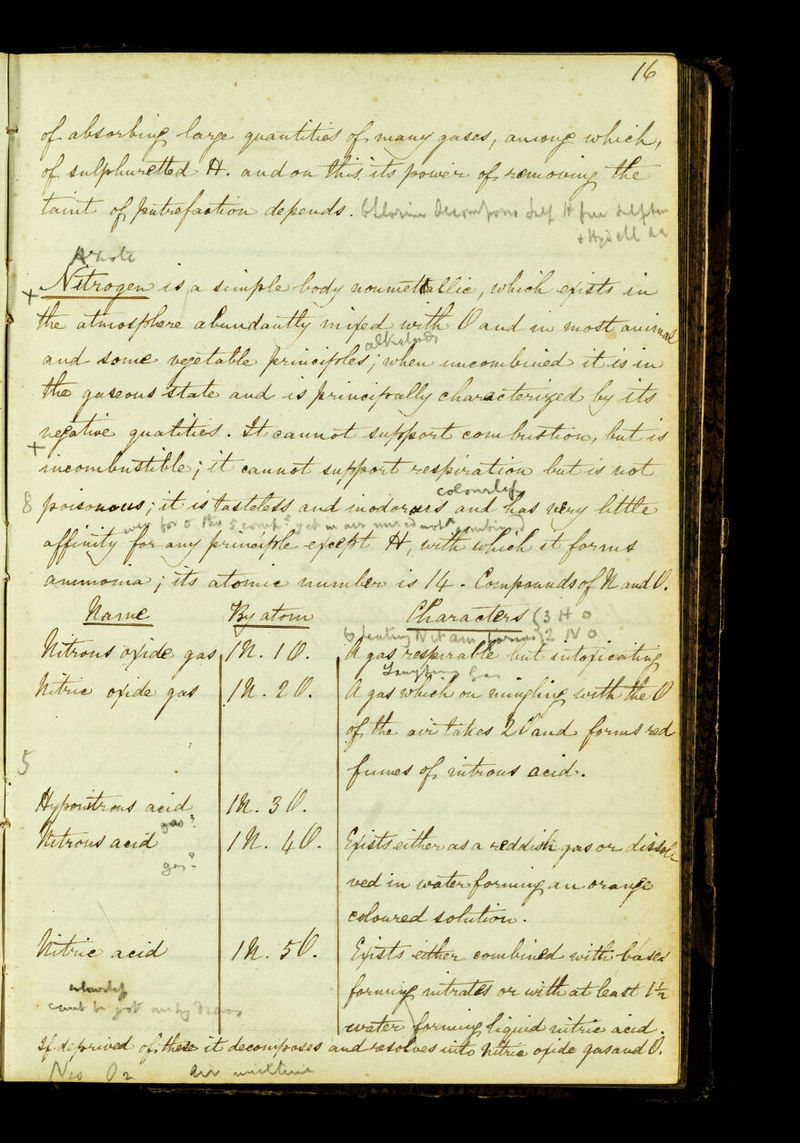 16
of absorbing large quantities of many gases, among which,
of sulphuretted H. and on this its power of removing the
taint of putrefaction depends. Chlorine decomposes Sulp H free Sulphur
+ Hyd
Azote
+ Nitrogen is a simple body nonmettallic, which exists in
the atmosphere abundantly mixed with O and in most animal
alkaloids
and some vegetable principles; when uncombined it is in
the gaseous state and is principally characterized by its
negative qualities. It cannot support combustion, but is
+ incombustible; it cannot support respiration but is not
colourless
8 poisonous; it is tasteless and inodorous and has very little
for O yet in air mixed not combined
affinity for any principle except H, with which it forms
ammonia; its atomic number is 14 - Compounds of N and O.
Name By atom Characters (3 H O
by heating Nit am forms 2 N O
Nitrous oxide gas 1 N. 1 O. A gas respirable but intoxicating
Laughing Gas
Nitric oxide gas 1 N. 2 O. A gas which on mingling with the O
of the air takes 2 O and forms red
5 fumes of nitrous acid.
Hyponitrous acid 1 N. 3 O.
gas?
Nitrous acid 1 N. 4 O. Exists either as a reddish gas or dissol-
gas?
ved in water forming an orange
coloured solution.
Nitric acid 1 N. 5 O. Exists either combined with bases
colourless
forming nitrates or with at least 1½
cant be got
water forming liquid nitric acid.
If deprived of these it decomposes and resolves into Nitric oxide gas and O.
O 2 air